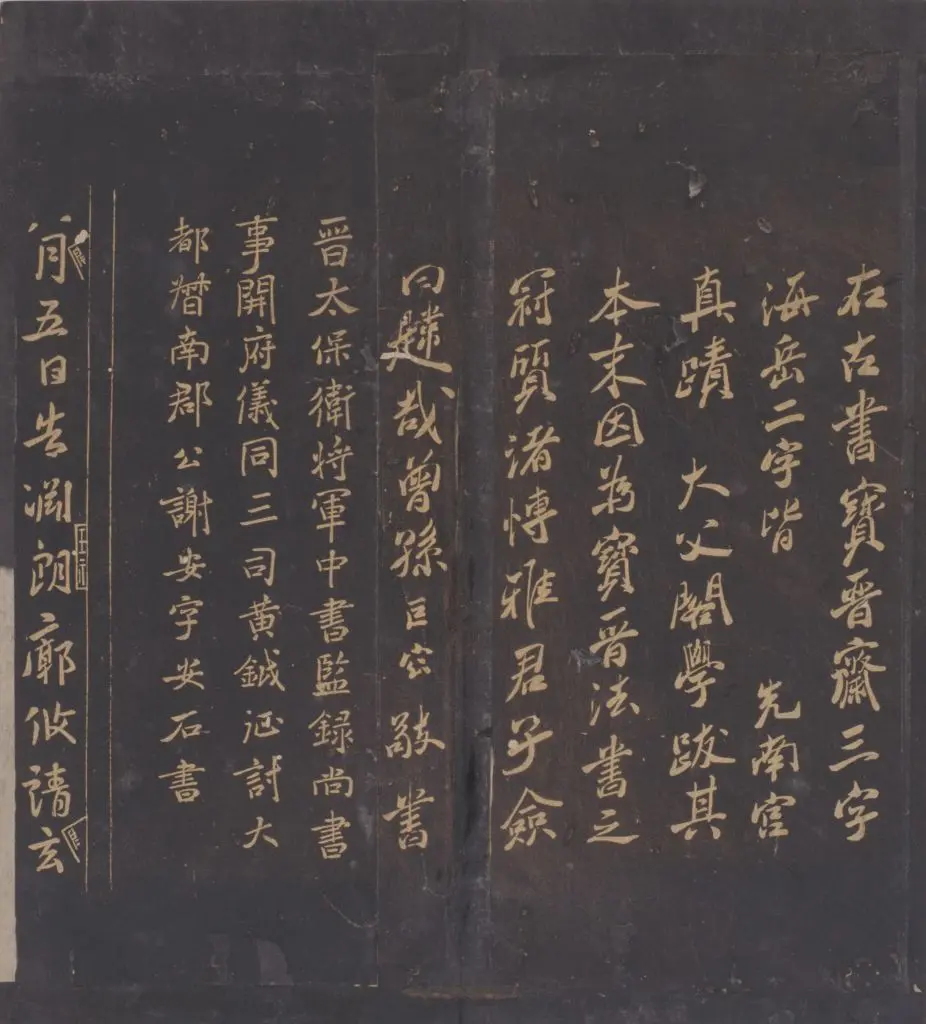 右古書寶晉齋三字
海岳二字皆 先南宮
真蹟 大父閣學跋其
本末因為寶晉法書之
冠質諸博雅君子僉
曰韙哉曾孫巨容敬書
晉太保衛將軍中書監錄尚書
事開府儀同三司黃鉞征討大
都督南郡公謝安字安石書
八月五日告淵朗廓攸靖玄